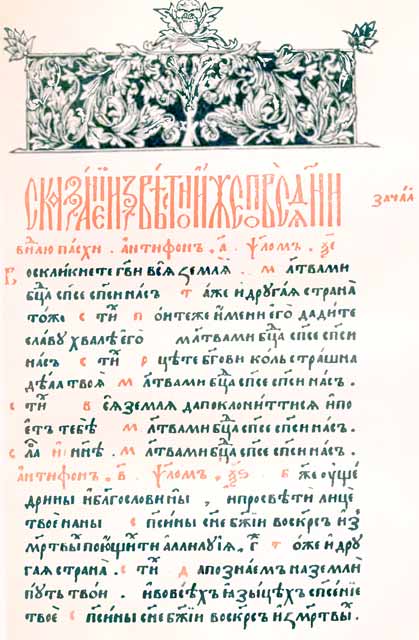 СКАЗАНИЕ ИЗВѢСТНО ИЖЕ ПО ВСѦ ДНИ
зачал
внл҃ю пасхи . антифон . а҃ . ѱалом . ѯ҃е
Воскликнете гв҃и всѧ землѧ . мл҃твами
бц҃а сп҃се сп҃си насъ таже и другаѧ страна
тоже сти҃ поитеже имени его дадите
славу хвалѣ его мл҃твами бц҃а сп҃се сп҃си
насъ сти҃ рцѣте бг҃ови коль страшна
дѣла твоѧ мл҃твами бц҃а сп҃се сп҃си насъ .
сти҃ всѧ землѧ да поклонит ти сѧ и по
етъ тебѣ мл҃твами бц҃а сп҃се сп҃си насъ .
сл҃а и нн҃ѣ . мл҃твами бц҃а сп҃се сп҃си насъ .
антифон . в҃ . ѱалом . ѯ҃ѕ . бж҃е оуще
дри ны и благослови ны , и просвѣти лице
твое на ны сп҃си ны сн҃е бж҃їи воскр҃съ из
мр҃твы поющи ти аллилуїѧ . тоже и дру
гаѧ страна . сти҃ да познаем на земли
путь твои . и во всѣх ꙗзыцѣх сп҃сенїе
твое сп҃си ны сн҃е бж҃їи воскр҃съ из мр҃твы .